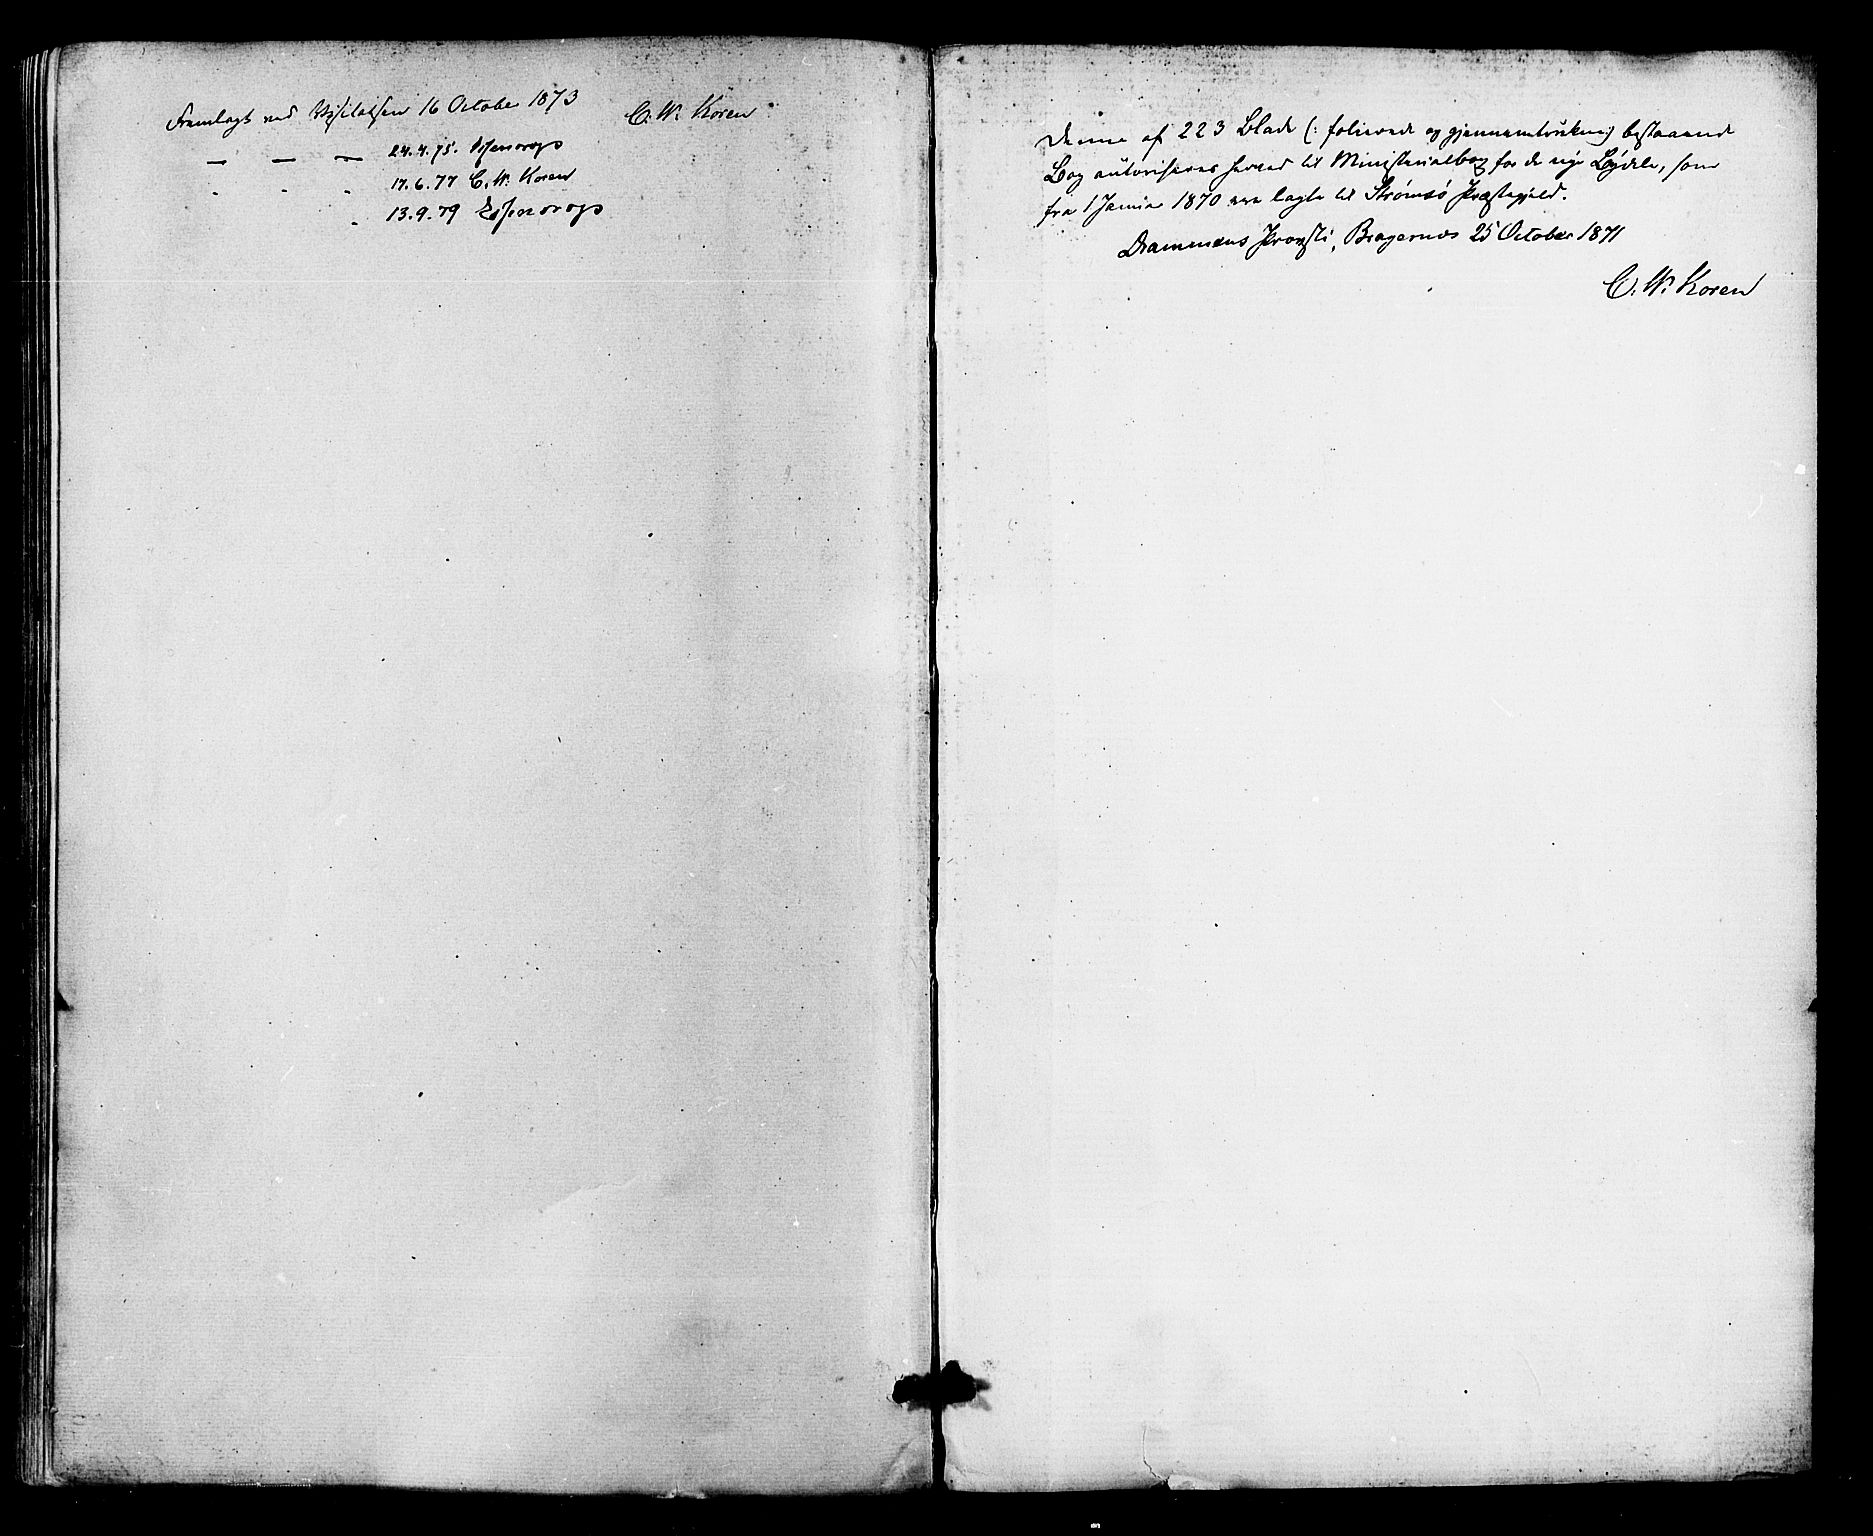 Fremlagt ved Visitatsen 16 October 1873 C. W. Koren
— — — 24.4.75.
" " " 17.6.77 C. W. Koren
" 13.9.79
Denne af 223 Blade (: folierede og gjennemtrukne:) bestaaende
Bog autoriseres herved til Ministerialbog for de nye Bydele, som
fra 1 Januar 1870 ere lagte til Strømsø Præstegjeld.
Drammens Provsti, Bragernæs 25 October 1871
C. W. Koren